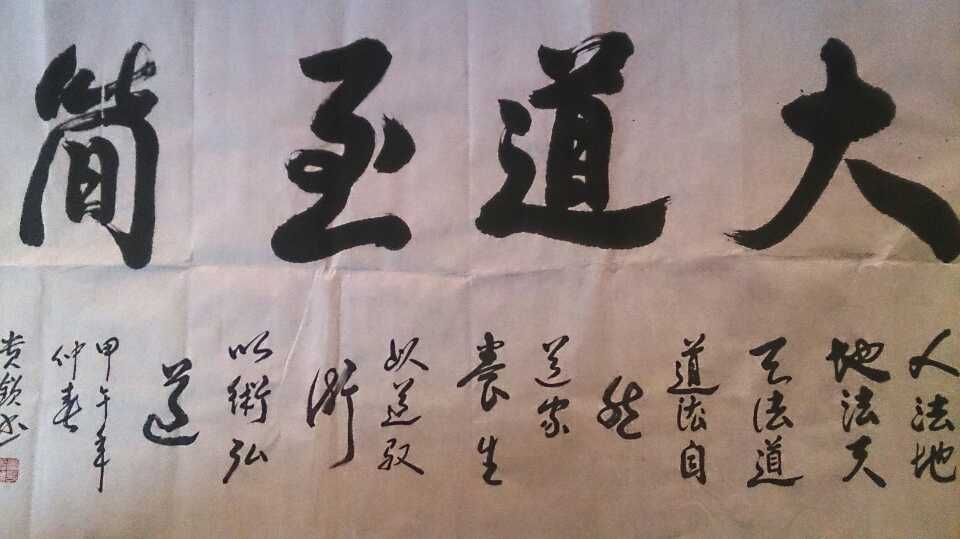 大道至简
人法地
地法天
天法道
道法自
然
道家
養生
以道驭
術
以術弘
道
甲午年
仲春
钦书